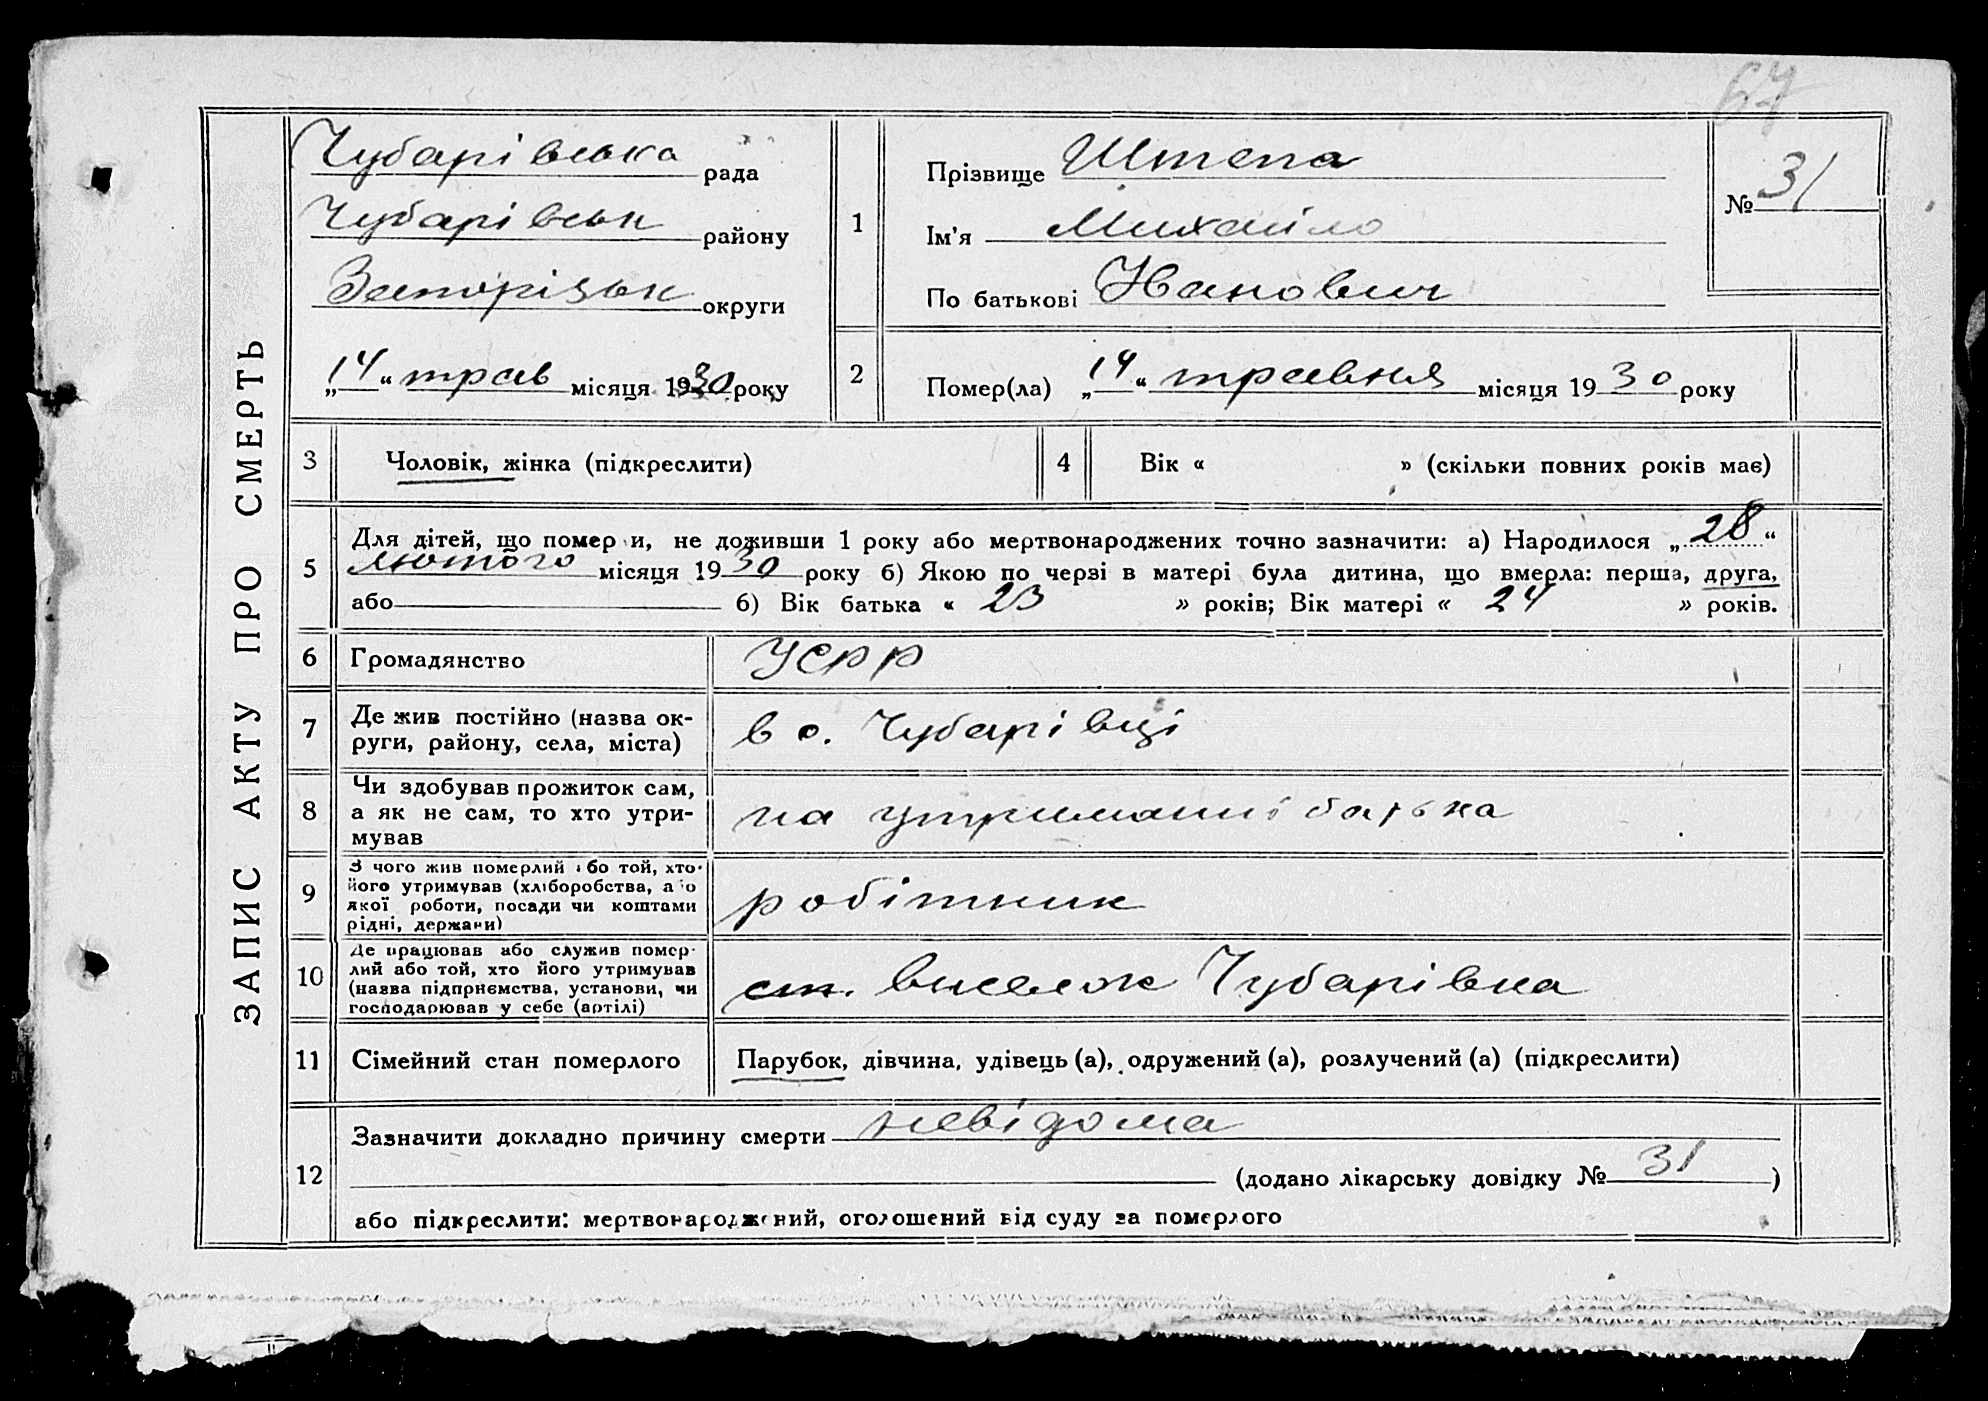 67
ЗАПИС АКТУ ПРО СМЕРТЬ
Чубарівська рада
Чубарівськ району
Запорізьк округи
„14“ трав місяця 1930 року
1
Прізвище Штепа
Ім'я Михайло
По батькові Іванович
№ 31
2
Помер(ла) „14“ травня місяця 1930 року
3 Чоловік, жінка (підкреслити)
4 Вік « » (скільки повних років має)
5 Для дітей, що помер и, не доживши 1 року або мертвонароджених точно зазначити: а) Народилося „28“
лютого місяця 1930 року б) Якою по черзі в матері була дитина, що вмерла: перша, друга,
або 6) Вік батька « 23 » років; Вік матері « 24 » років.
6 Громадянство УСРР
7 Де жив постійно (назва ок-
руги, району, села, міста) в с. Чубарівці
8 Чи здобував прожиток сам,
а як не сам, то хто утри-
мував на утриманні батька
9 З чого жив померлий або той, хто
його утримував (хліборобства, або
якої роботи, посади чи коштами
рідні, держави) робітник
10 Де працював або служив помер-
лий або той, хто його утримував
(назва підприємства, установи, чи
господарював у себе (артілі) ст. виселок Чубарівка
11 Сімейний стан померлого Парубок, дівчина, удівець (а), одружений (а), розлучений (а) (підкреслити)
12 Зазначити докладно причину смерти невідома
(додано лікарську довідку № 31)
або підкреслити: мертвонароджений, оголошений від суду за померлого